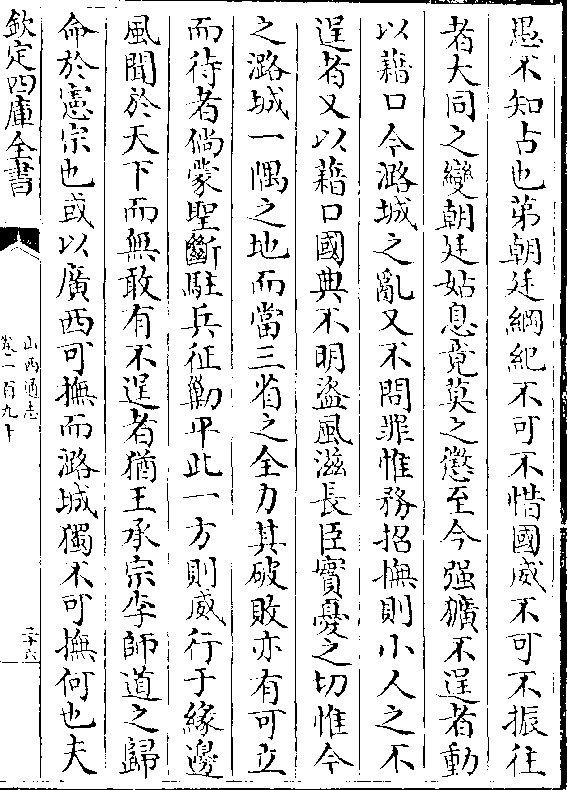 愚不知占也第朝廷綱紀不可不惜國威不可不振往
者大同之變朝廷姑息竟莫之懲至今强獷不逞者動
以藉口今潞城之亂又不問罪惟務招撫則小人之不
逞者又以藉口國典不明盜風滋長臣實憂之切惟今
之潞城一隅之地而當三省之全力其破敗亦有可立
而待者倘蒙聖斷駐兵征勦平此一方則威行于緣邊
風聞於天下而無敢有不逞者猶王承宗李師道之歸
命於憲宗也或以廣西可撫而潞城獨不可撫何也夫
欽定四庫全書
山西通志
卷一百九十
三十六